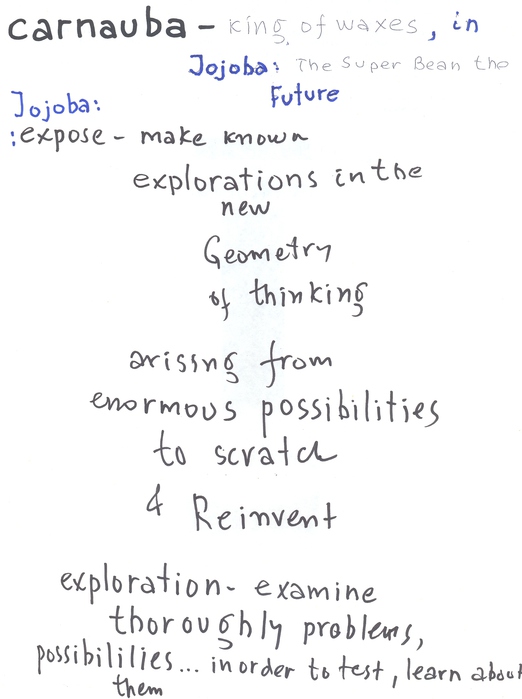 carnauba - king of waxes, in
Jojoba: The Super Bean the
Future
Jojoba:
:expose - make known
explorations in the
new
Geometry
of thinking
arissng from
enormous possibilities
to scratch
& Reinvent
exploration- examine
thoroughly problems,
possibililies... in order to test, learn about
them